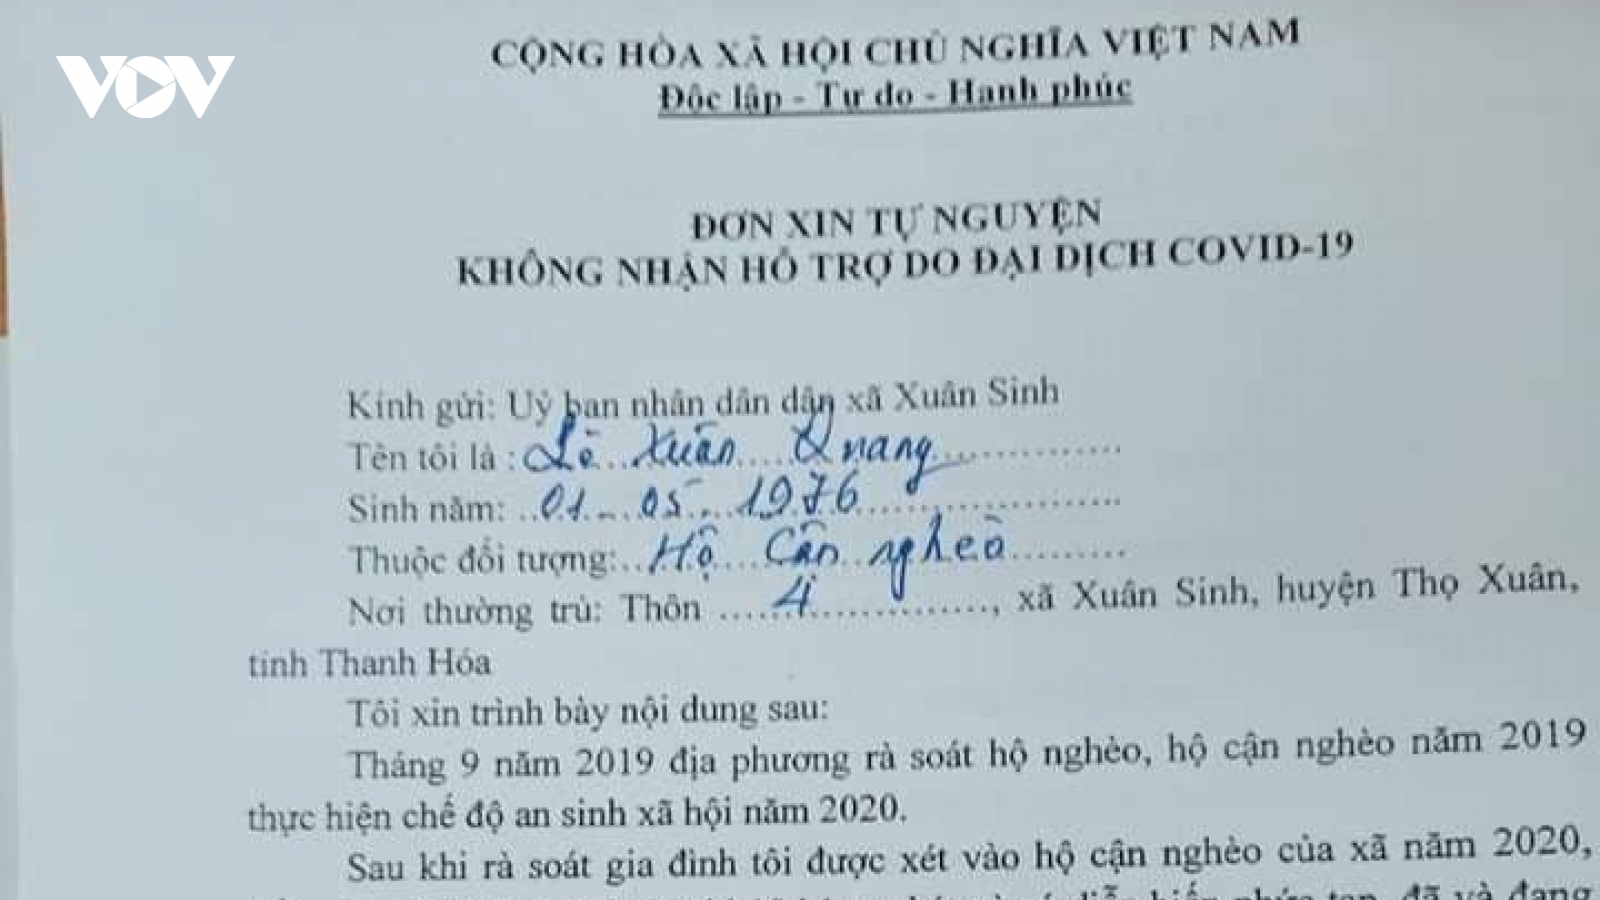 VOV
CỘNG HÒA XÃ HỘI CHỦ NGHĨA VIỆT NAM
Độc lập - Tự do - Hạnh phúc
ĐƠN XIN TỰ NGUYỆN
KHÔNG NHẬN HỖ TRỢ DO ĐẠI DỊCH COVID-19
Kính gửi: Uỷ ban nhân dân dân xã Xuân Sinh
Tên tôi là : Lê Xuân Quang
Sinh năm: 01 - 05 - 1976
Thuộc đối tượng: Hộ Cận nghèo
Nơi thường trú: Thôn 4, xã Xuân Sinh, huyện Thọ Xuân,
tỉnh Thanh Hóa
Tôi xin trình bày nội dung sau:
Tháng 9 năm 2019 địa phương rà soát hộ nghèo, hộ cận nghèo năm 2019
thực hiện chế độ an sinh xã hội năm 2020.
Sau khi rà soát gia đình tôi được xét vào hộ cận nghèo của xã năm 2020,
diễn biến phức tạp, đã và đang